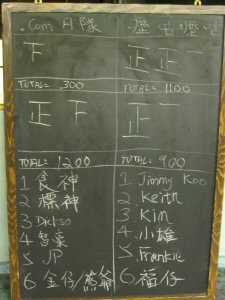 .Com A 隊
歴 咕 歴 咕
下
正 正 一
TOTAL= 300
TOTAL= 1100
正 下
正 一
TOTAL= 1200
TOTAL= 900
1 食神
2 標神
3 Dr.so
4 曾豪
5 JP
6 金仔/熊爺
1 Jimmy Koo
2 Keith
3 Kim
4 小雄
5 Frankie
6 福仔